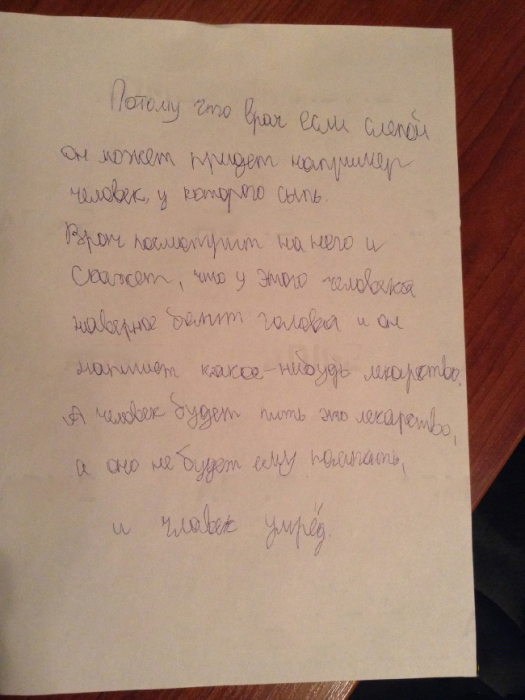 Потому что врач если слепой
он может придет например
человек, у которого сыпь.
Врач посмотрит на него и
скажет, что у этого человека
наверное болит голова и он
напишет какое-нибудь лекарство.
А человек будет пить это лекарство,
а оно не будет ему помагать,
и чловек умрёд.